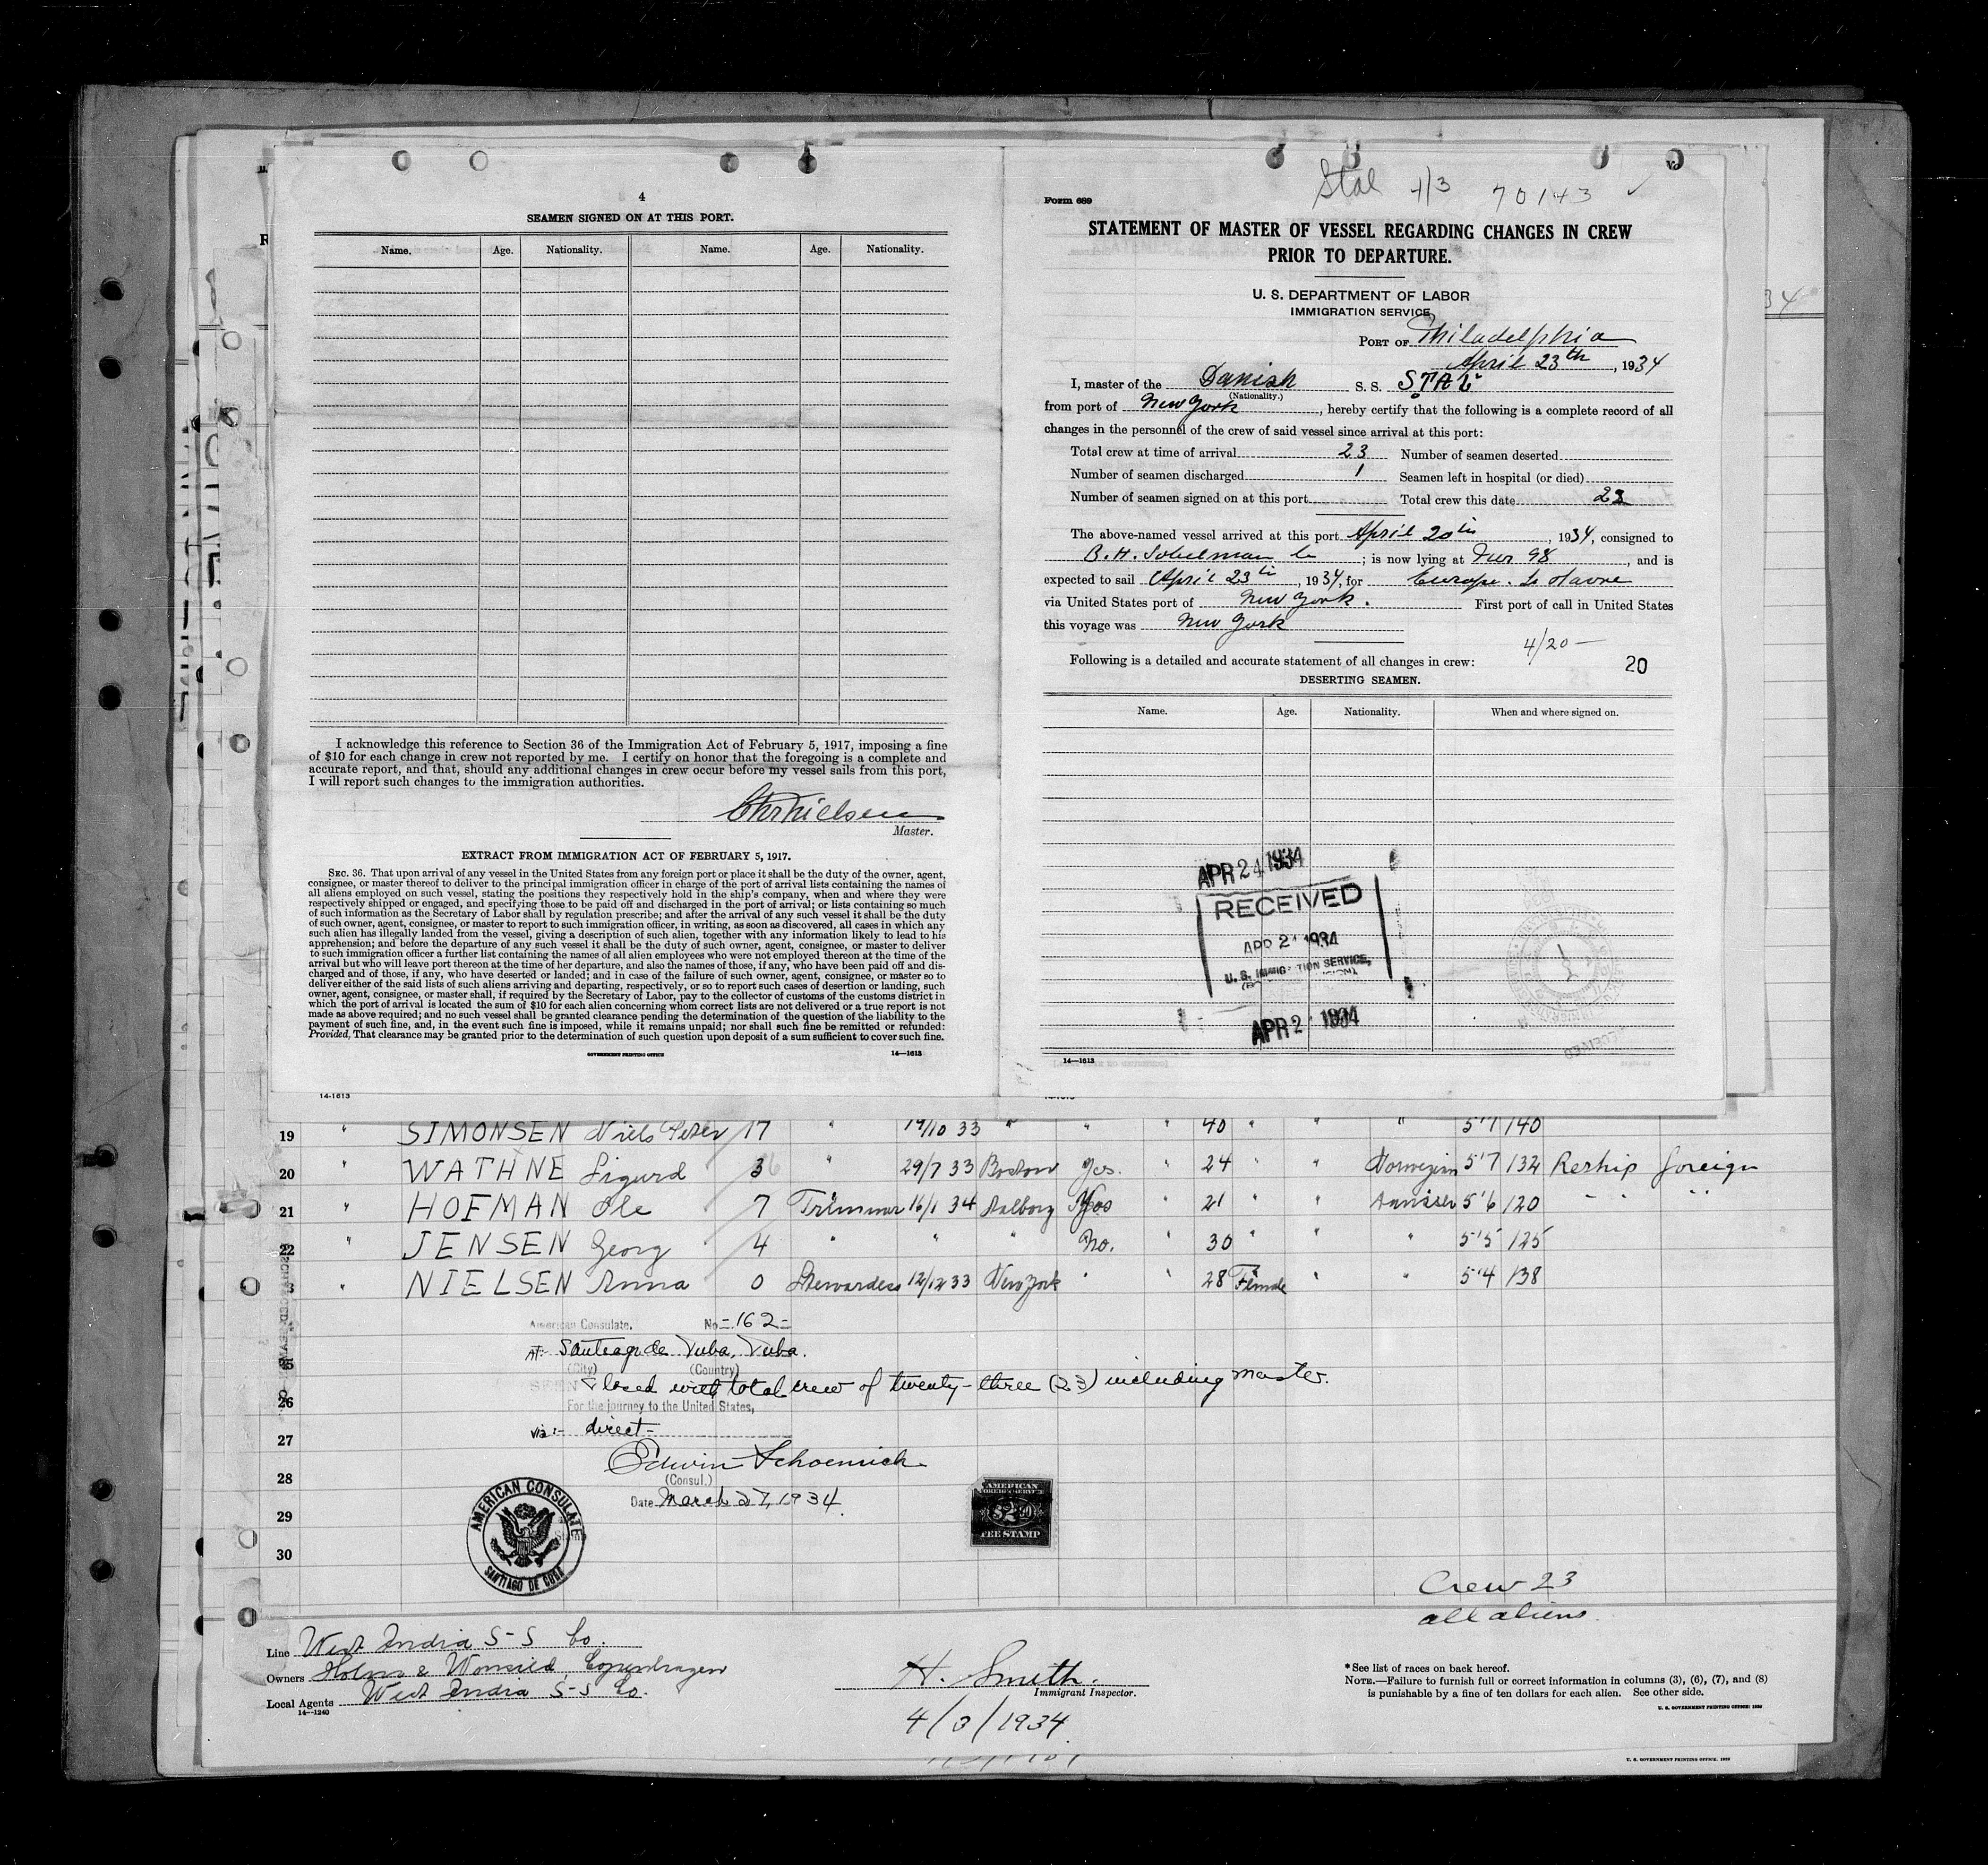 4
SEAMEN SIGNED ON AT THIS PORT.
Name. Age. Nationality. Name. Age. Nationality.
I acknowledge this reference to Section 36 of the Immigration Act of February 5, 1917, imposing a fine
of $10 for each change in crew not reported by me. I certify on honor that the foregoing is a complete and
accurate report, and that, should any additional changes in crew occur before my vessel sails from this port,
I will report such changes to the immigration authorities.
Chr Nielsen
Master.
EXTRACT FROM IMMIGRATION ACT OF FEBRUARY 5, 1917.
SEC. 36. That upon arrival of any vessel in the United States from any foreign port or place it shall be the duty of the owner, agent,
consignee, or master thereof to deliver to the principal immigration officer in charge of the port of arrival lists containing the names of
all aliens employed on such vessel, stating the positions they respectively hold in the ship's company, when and where they were
respectively shipped or engaged, and specifying those to be paid off and discharged in the port of arrival; or lists containing so much
of such information as the Secretary of Labor shall by regulation prescribe; and after the arrival of any such vessel it shall be the duty
of such owner, agent, consignee, or master to report to such immigration officer, in writing, as soon as discovered, all cases in which any
such alien has illegally landed from the vessel, giving a description of such alien, together with any information likely to lead to his
apprehension; and before the departure of any such vessel it shall be the duty of such owner, agent, consignee, or master to deliver
to such immigration officer a further list containing the names of all alien employees who were not employed thereon at the time of the
arrival but who will leave port thereon at the time of her departure, and also the names of those, if any, who have been paid off and dis-
charged and of those, if any, who have deserted or landed; and in case of the failure of such owner, agent, consignee, or master so to
deliver either of the said lists of such aliens arriving and departing, respectively, or so to report such cases of desertion or landing, such
owner, agent, consignee, or master shall, if required by the Secretary of Labor, pay to the collector of customs of the customs district in
which the port of arrival is located the sum of $10 for each alien concerning whom correct lists are not delivered or a true report is not
made as above required; and no such vessel shall be granted clearance pending the determination of the question of the liability to the
payment of such fine, and, in the event such fine is imposed, while it remains unpaid; nor shall such fine be remitted or refunded:
Provided, That clearance may be granted prior to the determination of such question upon deposit of a sum sufficient to cover such fine.
GOVERNMENT PRINTING OFFICE 14—1613
14-1613
Stal 4/3 70143 ✓
Form 689
STATEMENT OF MASTER OF VESSEL REGARDING CHANGES IN CREW
PRIOR TO DEPARTURE.
U. S. DEPARTMENT OF LABOR
IMMIGRATION SERVICE
PORT OF Philadelphia
April 23th, 1934
I, master of the Danish S. S. STAL
(Nationality.)
from port of New York, hereby certify that the following is a complete record of all
changes in the personnel of the crew of said vessel since arrival at this port:
Total crew at time of arrival 23 Number of seamen deserted
Number of seamen discharged 1 Seamen left in hospital (or died)
Number of seamen signed on at this port Total crew this date 22
The above-named vessel arrived at this port April 20th, 1934, consigned to
B. H. Sobelman Co; is now lying at Pier 98, and is
expected to sail April 23th, 1934, for Europe. Le Havre
via United States port of New York. First port of call in United States
this voyage was New York
4/20 –
Following is a detailed and accurate statement of all changes in crew: 20
DESERTING SEAMEN.
Name. Age. Nationality. When and where signed on.
APR 24 1934
RECEIVED
APR 2 1934
U. S. IMMIGRATION SERVICE,
APR 2 1934
14—1613
19 " SIMONSEN Niels Peter 17 " 19/10 33 " " " 40 " " " 5'7 140
20 " WATHNE Sigurd 36 " 29/7 33 Boston Yes. " 24 " " Norwegian 5'7 132 Reship foreign
21 " HOFMAN Ole 7 Trimmer 16/1 34 Aalborg Yes " 21 " " Danish 5'6 120 " "
22 " JENSEN Georg 4 " " " No. " 30 " " " 5'5 125
3 " NIELSEN Anna 0 Stewardess 12/12 33 New York " " 28 Female " " 5'4 138
American Consulate. No. -162-
AT:- Santiago de Cuba, Cuba.
(City) (Country)
SEEN Closed with total crew of twenty-three (23) including master.
For the journey to the United States,
via:- direct-
Edwin Schoenrich
(Consul.)
Date March 27, 1934
25
26
27
28
29
30
AMERICAN CONSULATE
SANTIAGO DE CUBA
AMERICAN
FOREIGN SERVICE
$2.50
FEE STAMP
Crew 23
all aliens
Line West India S-S Co.
Owners Holm & Wonsild, Copenhagen
Local Agents West India S-S Co.
14—1240
H. Smith.
Immigrant Inspector.
4/3/1934
*See list of races on back hereof.
NOTE.—Failure to furnish full or correct information in columns (3), (6), (7), and (8)
is punishable by a fine of ten dollars for each alien. See other side.
U. S. GOVERNMENT PRINTING OFFICE: 1933
U. S. GOVERNMENT PRINTING OFFICE. 1932